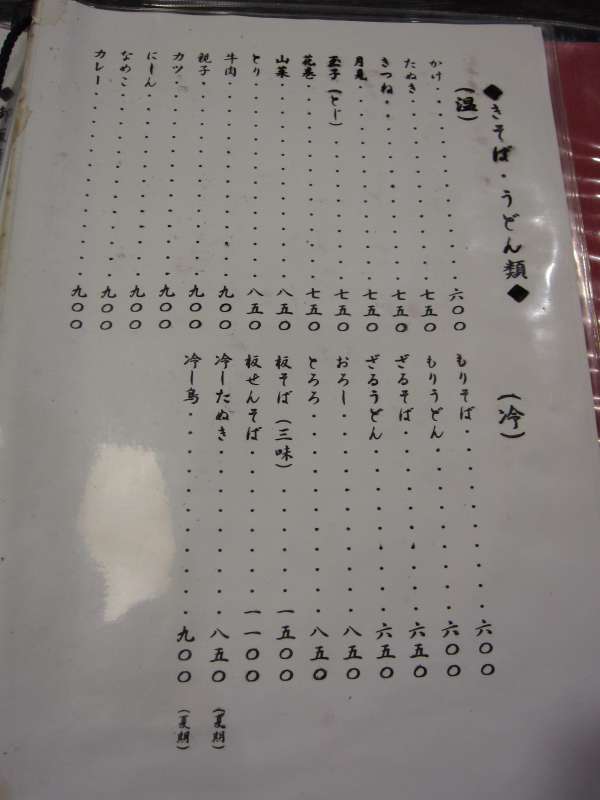 ◆きそば・うどん類◆
(温)
かけ・・・・・・・・・・・・・六〇〇
たぬき・・・・・・・・・・・・七五〇
きつね・・・・・・・・・・・・七五〇
月見・・・・・・・・・・・・・七五〇
玉子(とじ)・・・・・・・・・・七五〇
花巻・・・・・・・・・・・・・七五〇
山菜・・・・・・・・・・・・・八五〇
とり・・・・・・・・・・・・・八五〇
牛肉・・・・・・・・・・・・・九〇〇
親子・・・・・・・・・・・・・九〇〇
カツ・・・・・・・・・・・・・九〇〇
にしん・・・・・・・・・・・・九〇〇
なめこ・・・・・・・・・・・・九〇〇
カレー・・・・・・・・・・・・九〇〇
(冷)
もりそば・・・・・・・・・・六〇〇
もりうどん・・・・・・・・・六〇〇
ざるそば・・・・・・・・・・六五〇
ざるうどん・・・・・・・・・六五〇
おろし・・・・・・・・・・・八五〇
とろろ・・・・・・・・・・・八五〇
板そば(三味)・・・・・・・一五〇〇
板せんそば・・・・・・・・一一〇〇
冷したぬき・・・・・・・・・八五〇(夏期)
冷し鳥・・・・・・・・・・・九〇〇(夏期)